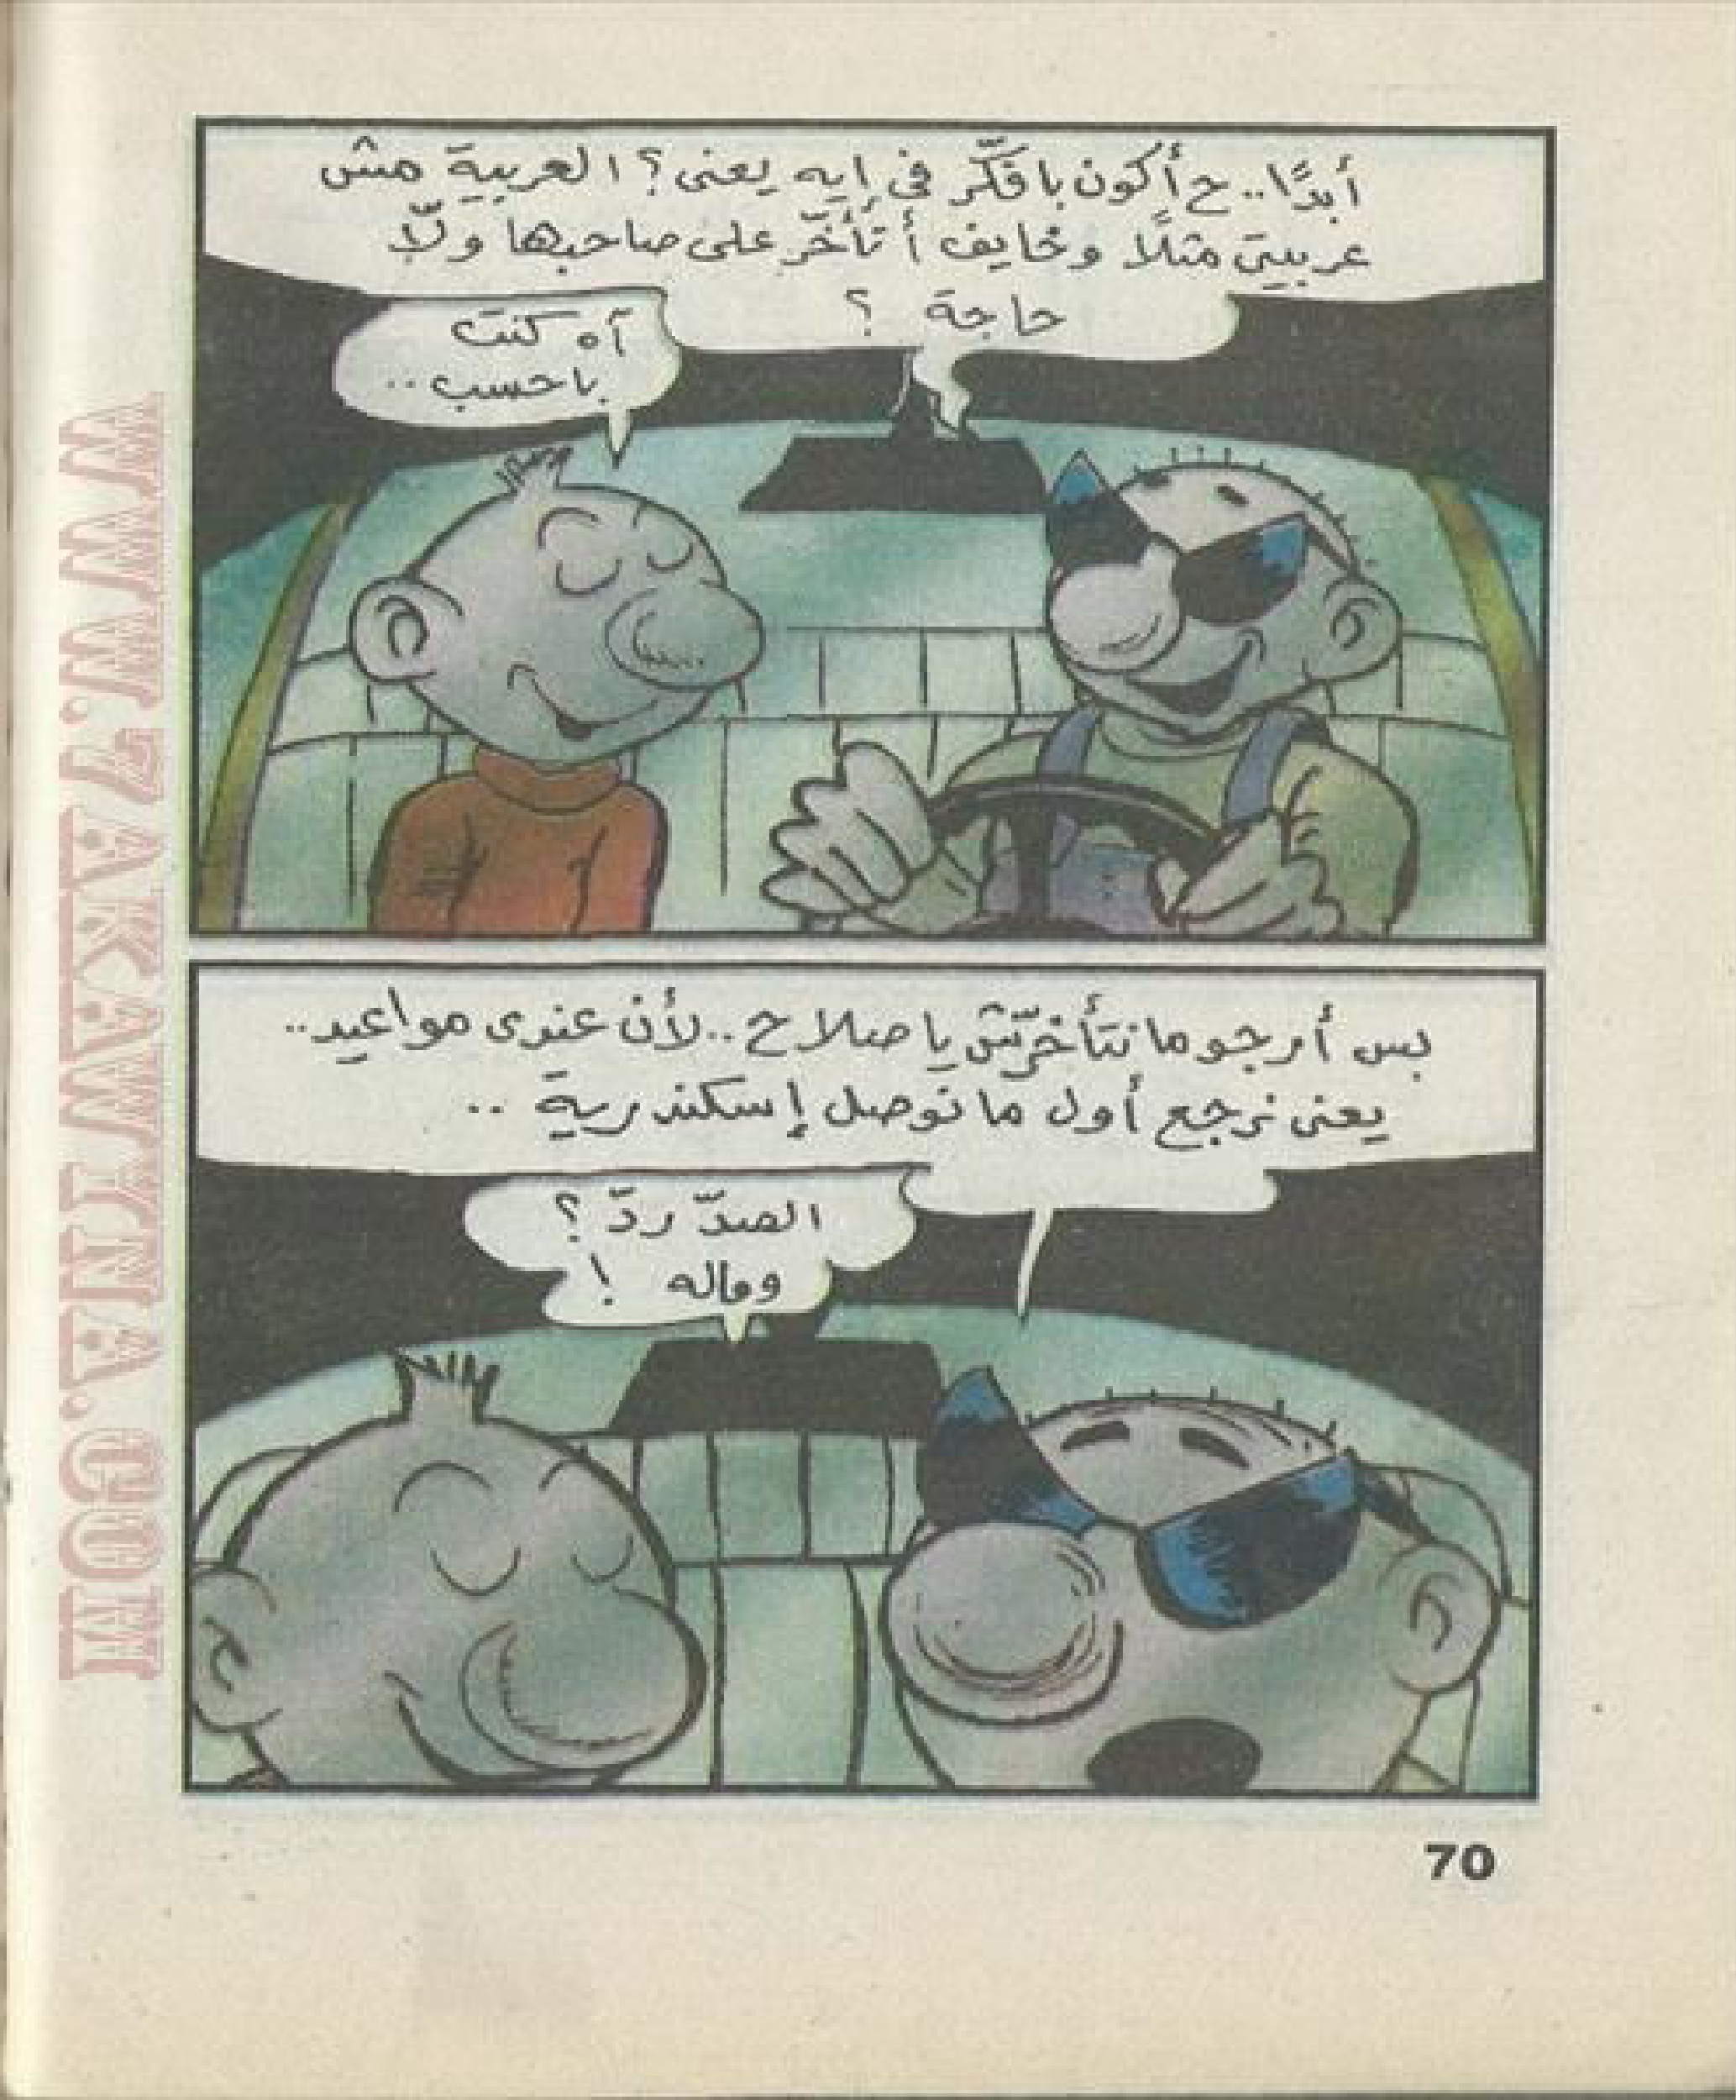 أبدًا.. ح أكون بافكّر في إيه يعنى؟ العربية مش
عربيتى مثلًا وخايف أتأخّر على صاحبها ولّا
حاجة ؟
آه كنت
باحسب..
بس أرجو ما نتأخرّش يا صلاح.. لأن عندى مواعيد..
يعنى نرجع أول ما نوصل إسكندرية ..
الصدّ ردّ ؟
وماله !
70
WWW.7AKAWTNA.COM